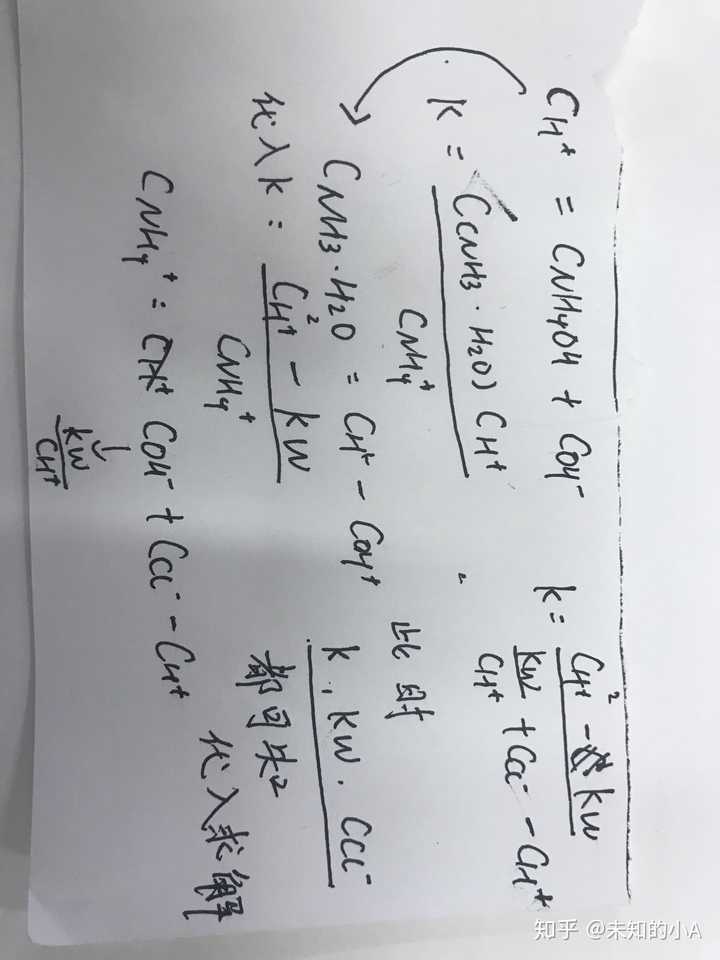 CH⁺ = CNH₄OH + COH⁻
K = C(NH₃·H₂O) CH⁺
CNH₄⁺
CNH₃·H₂O = CH⁺ - COH⁺
代入K = CH⁺² - KW
CNH₄⁺
CNH₄⁺ = COH⁻ + CCl⁻ - CH⁺
KW
CH⁺
K = CH⁺² - KW
KW + CCl⁻ - CH⁺
CH⁺
此时
K, KW, CCl⁻
都可求
代入求解
知乎 @未知的小A